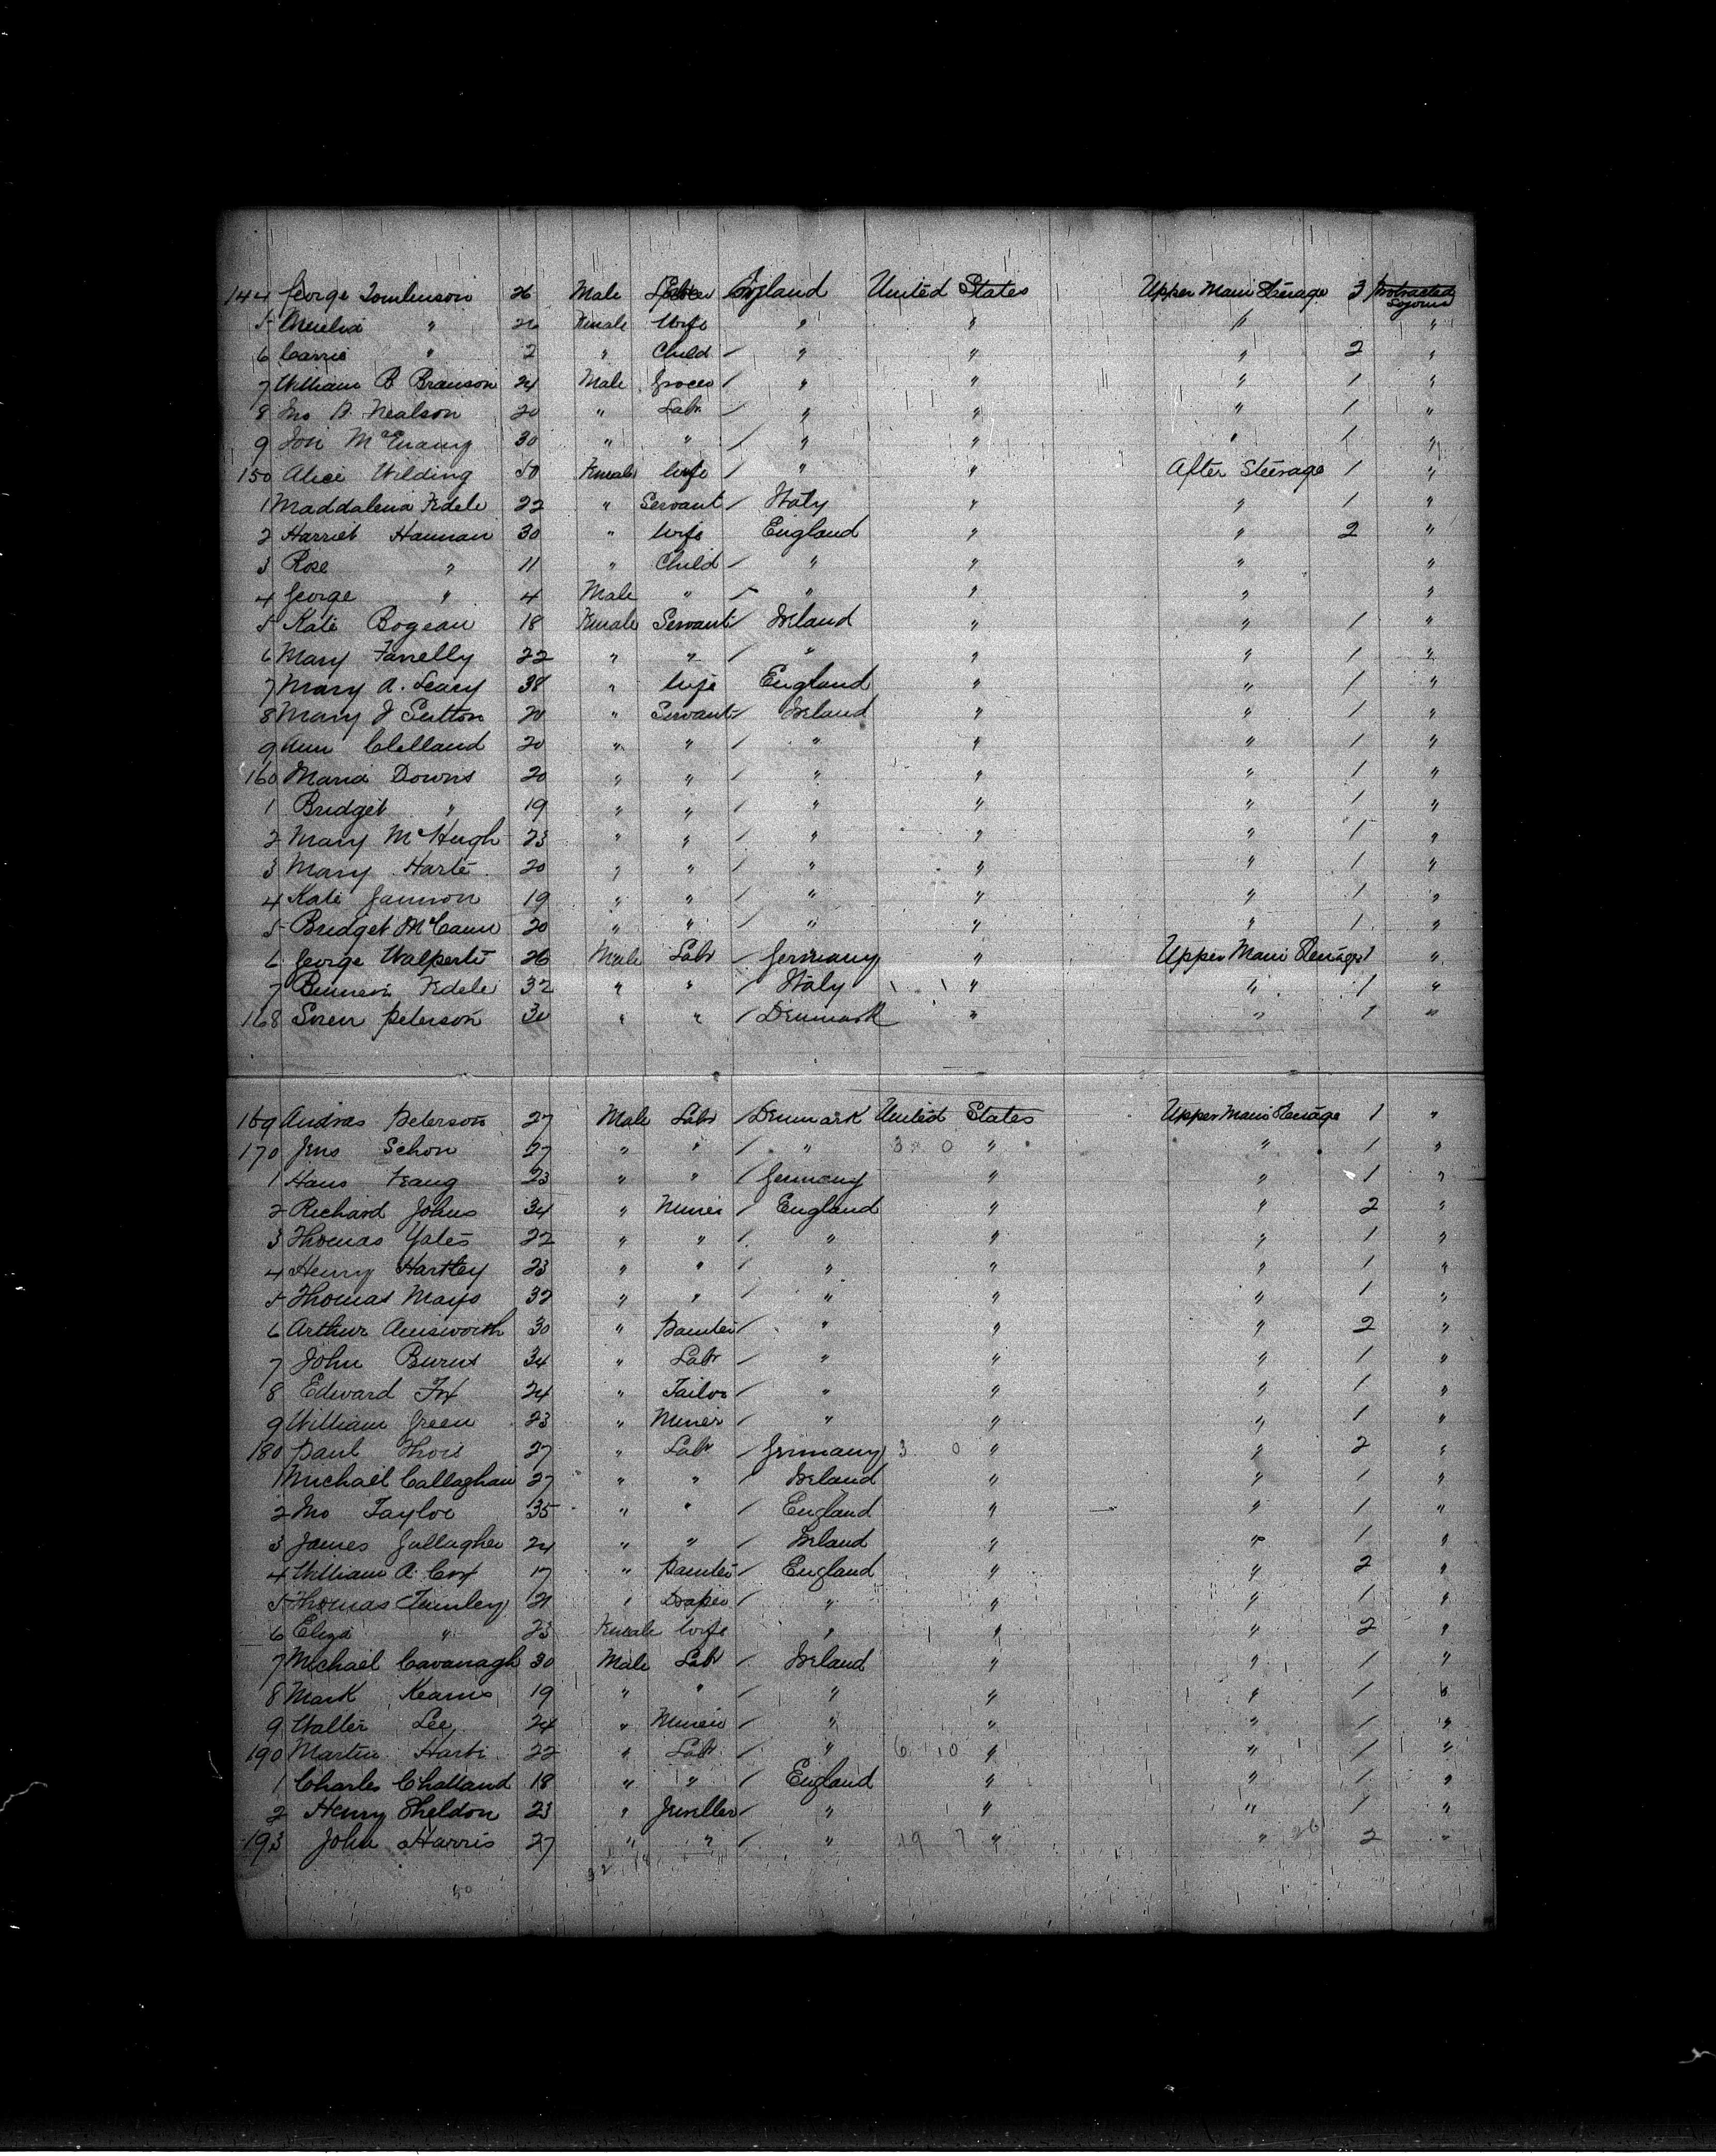 144 George Tomlinson 26 Male England United States Upper Main Steerage 3 Protracted Sojourn
5 Amelia " 26 Female Wife " " " "
6 Carrie " 2 " Child / " " " 2 "
7 William B Branson 24 Male Grocer / " " " 1 "
8 Jno A Nealson 20 " Labr / " " " 1 "
9 30 " " / " " " 1 "
150 Alice Wilding 50 Female Wife / " " After Steerage 1 "
1 Maddalena Fedele 22 " Servant / Italy " " 1 "
2 Harriet Hannan 30 " Wife England " " 2 "
3 Rose " 11 " Child / " " " "
4 George " 4 Male " / " " " "
5 Kate Bogean 18 Female Servant / Ireland " " 1 "
6 Mary Farrelly 22 " " / " " " 1 "
7 Mary A. Leary 38 " Wife England " " 1 "
8 Mary J Sutton 20 " Servant / Ireland " " 1 "
9 Ann Clelland 20 " " / " " " 1 "
160 Maria Downs 20 " " / " " " 1 "
1 Bridget " 19 " " / " " " 1 "
2 Mary McHugh 23 " " / " " " 1 "
3 Mary Harte 20 " " / " " " 1 "
4 Kate Gannon 19 " " / " " " 1 "
5 Bridget McCann 20 " " / " " " 1 "
6 George Walperti 26 Male Labr / Germany " Upper Main Steerage 1 "
7 Fedele 32 " " / Italy " " 1 "
168 Soren Peterson 30 " " / Denmark " " 1 "
169 Andras Peterson 27 Male Labr / Denmark United States Upper Main Steerage 1 "
170 Jens Schon 27 " " / " 3 0 " " 1 "
1 Hans 23 " " / Germany " " 1 "
2 Richard Johns 34 " Miner / England " " 2 "
3 Thomas Yates 22 " " / " " " 1 "
4 Henry Hartley 23 " " / " " " 1 "
5 Thomas Mayo 32 " " / " " " 1 "
6 Arthur Ainsworth 30 " Painter / " " " 2 "
7 John Burns 34 " Labr / " " " 1 "
8 Edward Fox 24 " Tailor / " " " 1 "
9 William Green 23 " Miner / " " " 1 "
180 Paul Thors 27 " Labr / Germany 3 0 " " 2 "
1 Michael Callaghan 27 " " / Ireland " " 1 "
2 Jno Taylor 35 " " / England " " 1 "
3 James Gallagher 24 " " / Ireland " " 1 "
4 William A. Cox 17 " Painter / England " " 2 "
5 Thomas 21 " Draper / " " " 1 "
6 Eliza " 23 Female Wife " " " 2 "
7 Michael Cavanagh 30 Male Labr / Ireland " " 1 "
8 Mark Kearns 19 " " / " " " 1 "
9 Walter Lee 24 " Miner / " " " 1 "
190 Martin Harte 22 " Labr / " 6 10 " " 1 "
1 Charles Challand 18 " " / England " " 1 "
2 Henry Sheldon 23 " Jeweller / " " " 1 "
193 John Harris 27 " " / " 19 7 " " 26 2 "